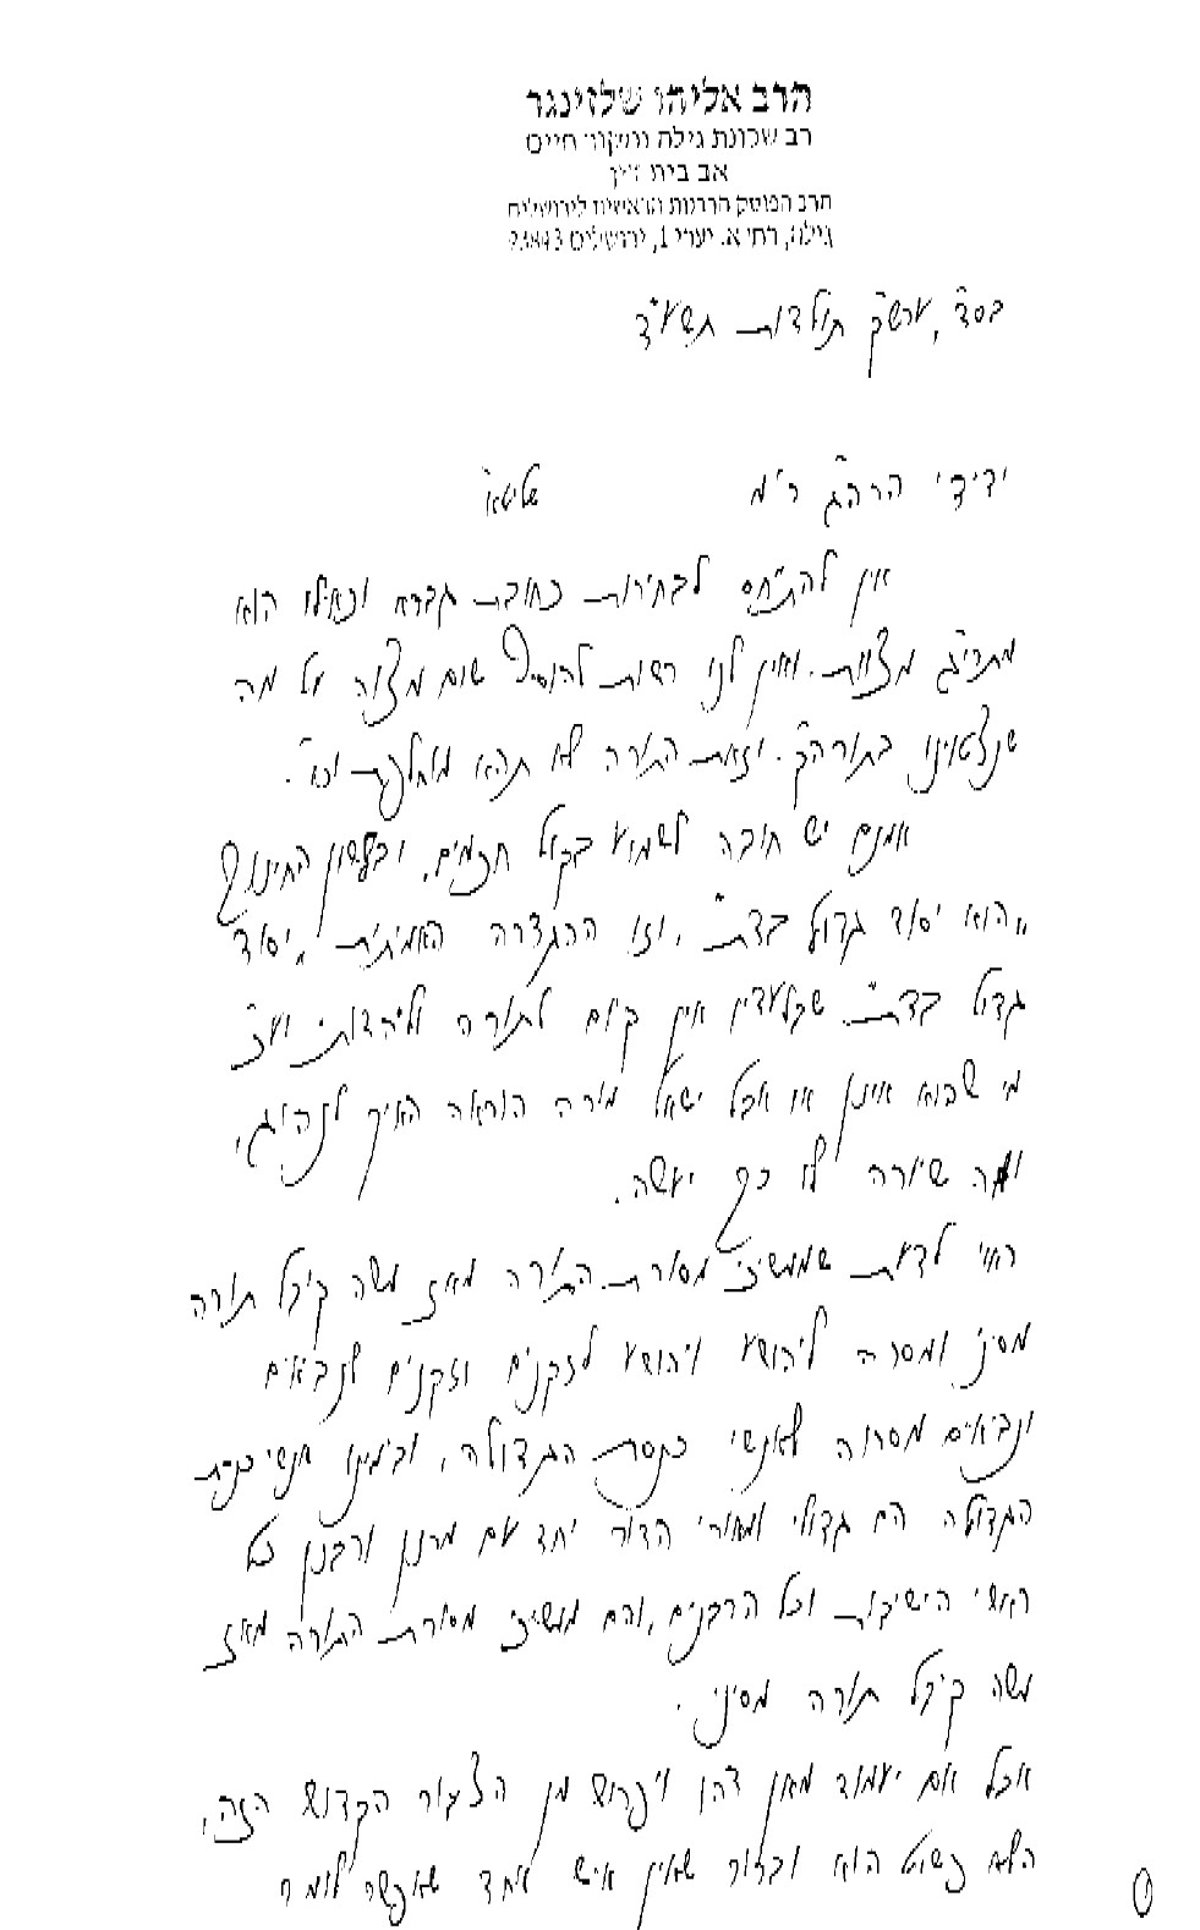 הרב אליהו שלזינגר
רב שכונת גילה ומקור חיים
אב בית דין
הרב הפוסק הרבנות הראשית לירושלים
גילה, רח' א. יערי 1, ירושלים 93843
בס"ד, ערש"ק תולדות תשע"ד
ידידי הרה"ג ר' מ שליט"א
אין להתיחס לבחירות כחובת גברא וכאילו הוא
מתרי"ג מצוות. ואין לנו רשות להוסיף שום מצוה על מה
שנצטוינו בתוה"ק. וזאת התורה לא תהא מוחלפת וכו'.
אמנם יש חובה לשמוע בקול חכמים, ובלשון החינוך
"הוא יסוד גדול בדת", וזו ההגדרה האמיתית "יסוד
גדול בדת". שבלעדיו אין קיום לתורה וליהדות, וע"כ
מי שהוא אינו או אבל ישאל מורה הוראה האיך לנהוג,
ומה שיורה לו כך יעשה.
ראוי לדעת שממשיכי מסורת התורה מאז משה קיבל תורה
מסיני ומסרה ליהושע ויהושע לזקנים וזקנים לנביאים
ונביאים מסרוה לאנשי כנסת הגדולה, ובימינו אנשי כנסת
הגדולה הם גדולי ומאורי הדור יחד עם מרנן ורבנן כל
ראשי הישיבות וכל הרבנים, והם ממשיכי מסורת התורה מאז
משה קיבל תורה מסיני.
אבל אם יעמוד מאן דהו ויפרוש מן הציבור הקדוש הזה,
הלא פשוט הוא וברור שאין איש אחד שאפשר לומר